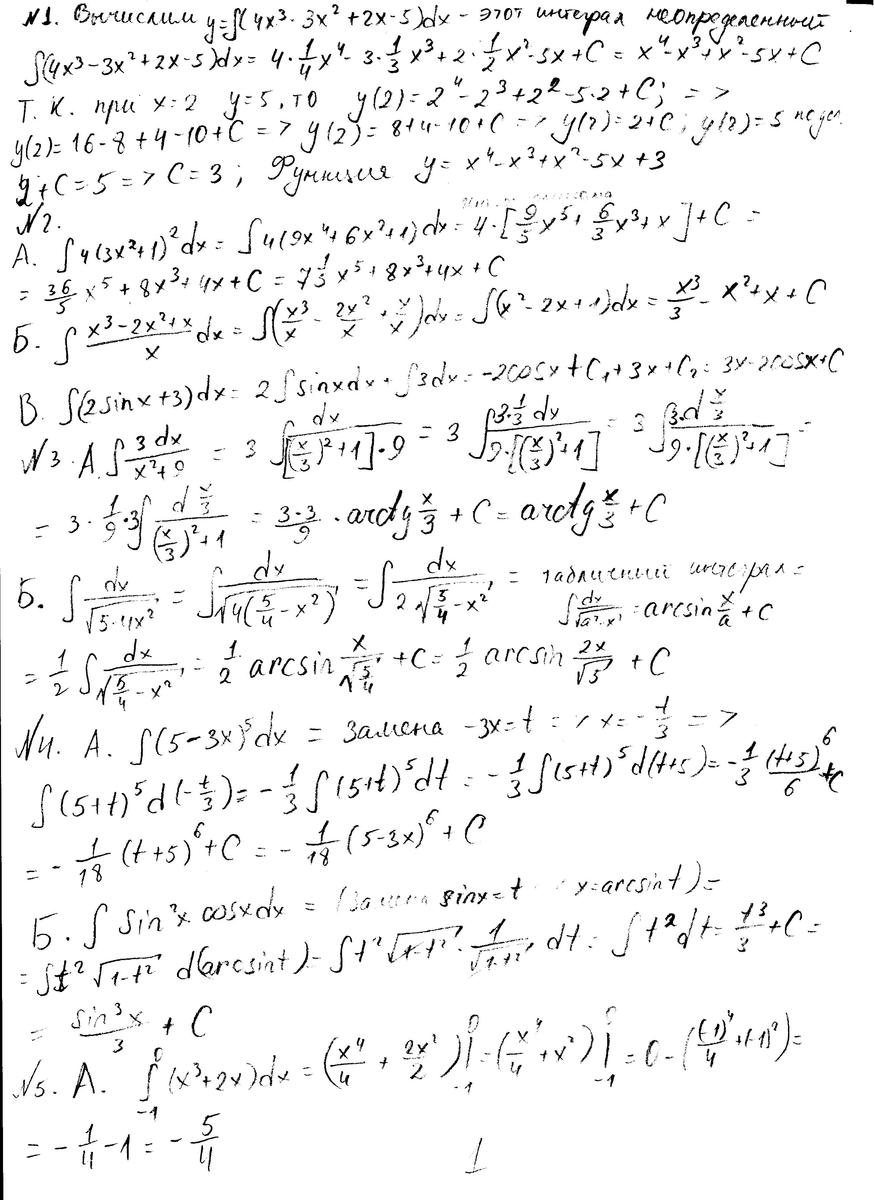 №1. Вычислим y=∫(4x³-3x²+2x-5)dx - этот интеграл неопределенный
∫(4x³-3x²+2x-5)dx = 4·1/4 x⁴ - 3·1/3 x³ + 2·1/2 x² - 5x + C = x⁴-x³+x²-5x+C
Т.К. при x=2 y=5, то y(2)=2⁴-2³+2²-5·2+C; =>
y(2)=16-8+4-10+C => y(2)=8+4-10+C => y(2)=2+C; y(2)=5
2+C=5 => C=3; Функция y=x⁴-x³+x²-5x+3
№2.
А. ∫4(3x²+1)²dx = ∫4(9x⁴+6x²+1)dx = 4·[9/5 x⁵ + 6/3 x³ + x] + C =
= 36/5 x⁵ + 8x³ + 4x + C = 7 1/3 x⁵ + 8x³ + 4x + C
Б. ∫ (x³-2x²+x)/x dx = ∫(x³/x - 2x²/x + x/x)dx = ∫(x²-2x+1)dx = x³/3 - x² + x + C
В. ∫(2sinx+3)dx = 2∫sinxdx + ∫3dx = -2cosx + C₁ + 3x + C₂ = 3x-2cosx+C
№3. А. ∫ 3dx/(x²+9) = 3 ∫ dx/([(x/3)²+1]·9) = 3 ∫ (3·1/3 dx)/(9·[(x/3)²+1]) = 3 ∫ (3·d x/3)/(9·[(x/3)²+1]) =
= 3·1/9·3 ∫ (d x/3)/((x/3)²+1) = 3·3/9 · arctg x/3 + C = arctg x/3 + C
Б. ∫ dx/√(5-4x²) = ∫ dx/√(4(5/4-x²)) = ∫ dx/(2√(5/4-x²)) = табличный интеграл =
∫ dx/√(a²-x²) = arcsin x/a + C
= 1/2 ∫ dx/√(5/4-x²) = 1/2 arcsin x/√(5/4) + C = 1/2 arcsin 2x/√5 + C
№4. А. ∫(5-3x)⁵dx = Замена -3x=t => x=-t/3 =>
∫(5+t)⁵d(-t/3) = -1/3 ∫(5+t)⁵dt = -1/3 ∫(5+t)⁵d(t+5) = -1/3 (t+5)⁶/6 + C
= -1/18 (t+5)⁶ + C = -1/18 (5-3x)⁶ + C
Б. ∫ sin²x cosxdx = (Замена sinx=t x=arcsint) =
= ∫t² √(1-t²) d(arcsint) = ∫t² √(1-t²) · 1/√(1-t²) dt = ∫t²dt = t³/3 + C =
= sin³x/3 + C
№5. А. ∫₋₁⁰ (x³+2x)dx = (x⁴/4 + 2x²/2)|₋₁⁰ = (x⁴/4 + x²)|₋₁⁰ = 0 - ((-1)⁴/4 + (-1)²) =
= -1/4 - 1 = -5/4
1